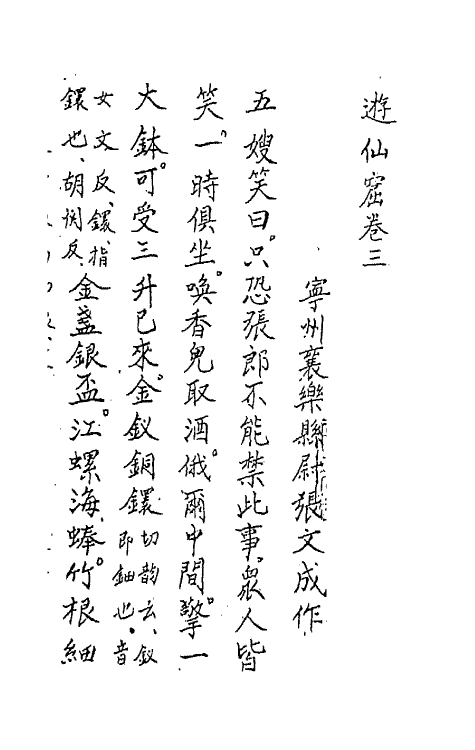 遊仙窟卷三
寧州襄樂縣尉張文成作
五嫂笑曰。只恐張郎不能禁此事。眾人皆
笑。一時俱坐。喚香兒取酒。俄爾中間。擎一
大鉢。可受三升已來。金釵銅鐶切韵云、釵
即鈿也・音
女文反、鐶、指
鐶也、胡関反、金盞銀盃。江螺海蜯。竹根細